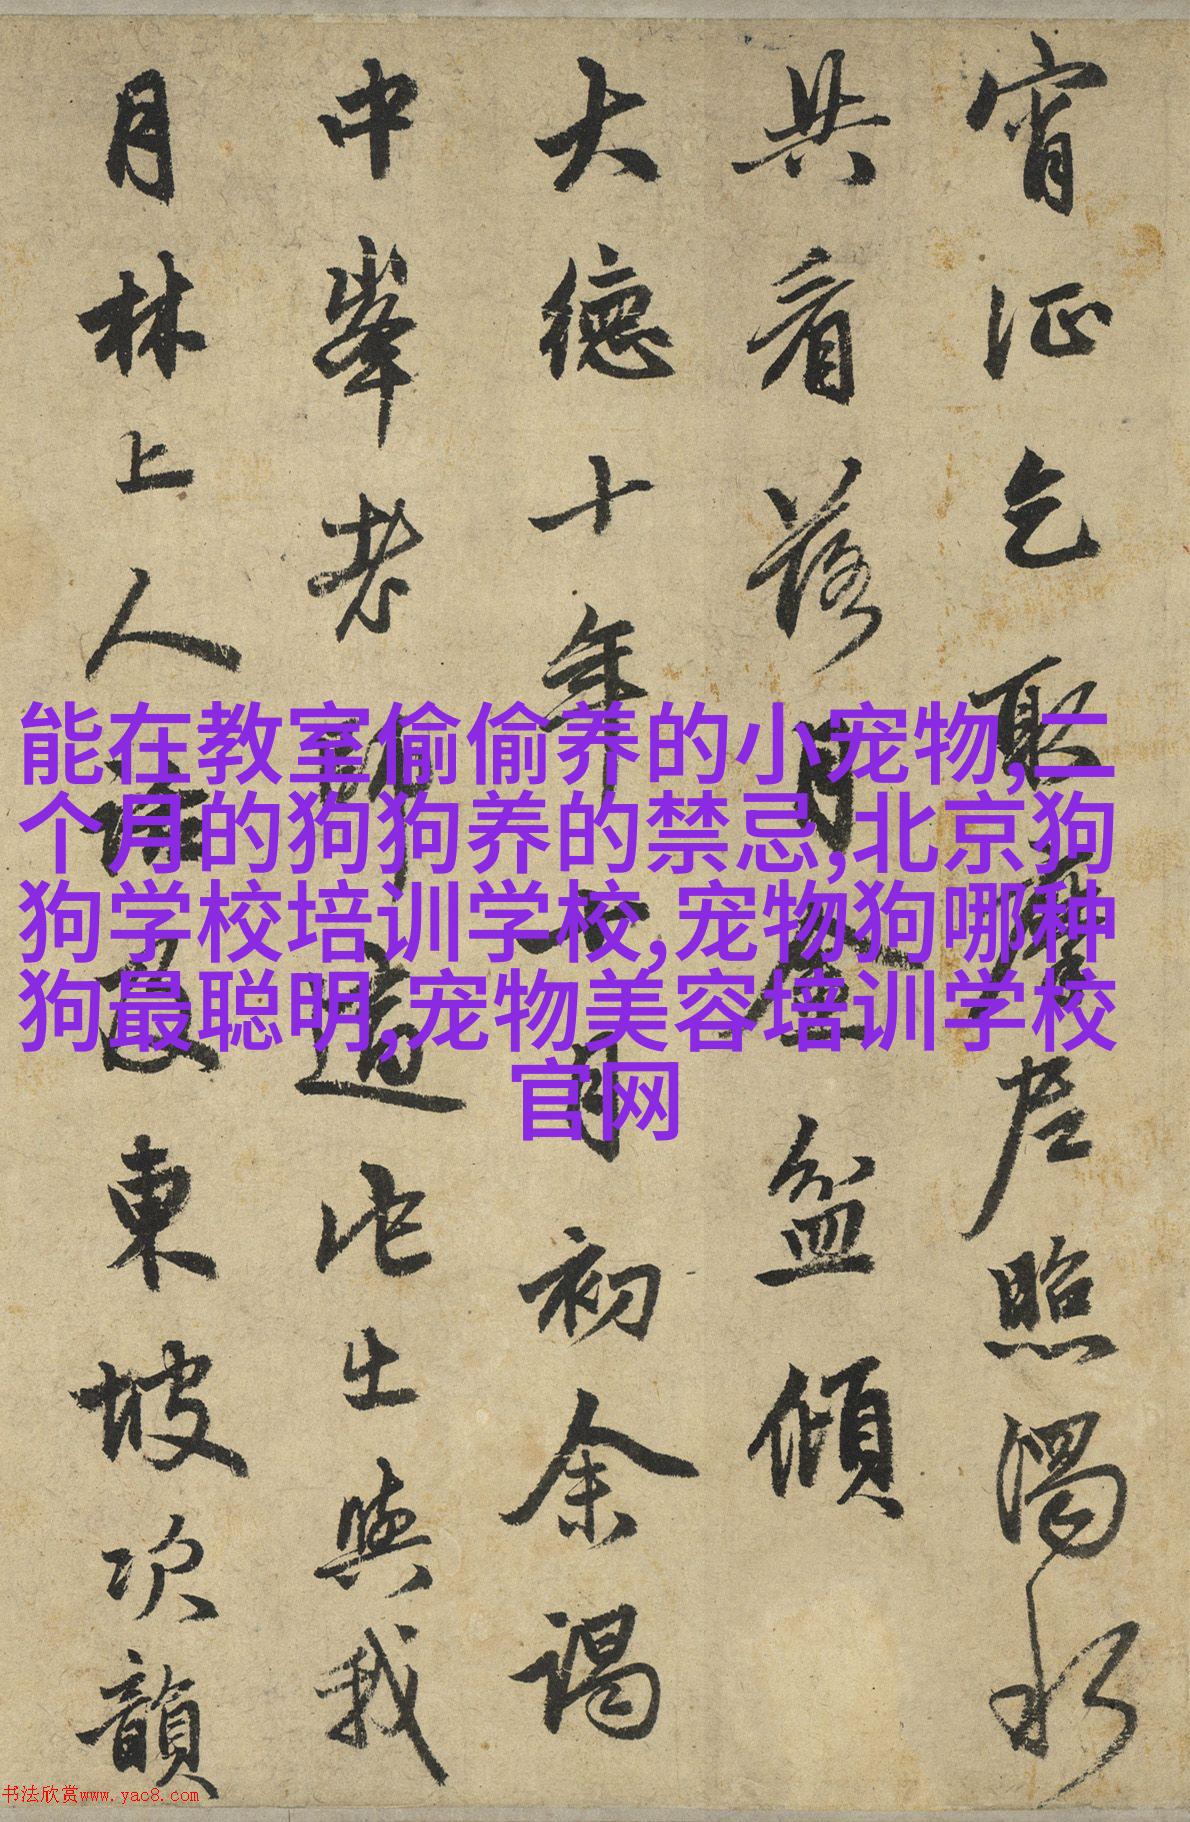 宵征乞取摩尼照濁水
共看落月金盆傾
大德十年月初余謁
中峯老師適他出與我
月林上人語及東坡次韻
能在教室偷偷养的小宠物,二
个月的狗狗养的禁忌,北京狗
狗学校培训学校,宠物狗哪种
狗最聪明,宠物美容培训学校
官网
书法欣赏www.yac8.com